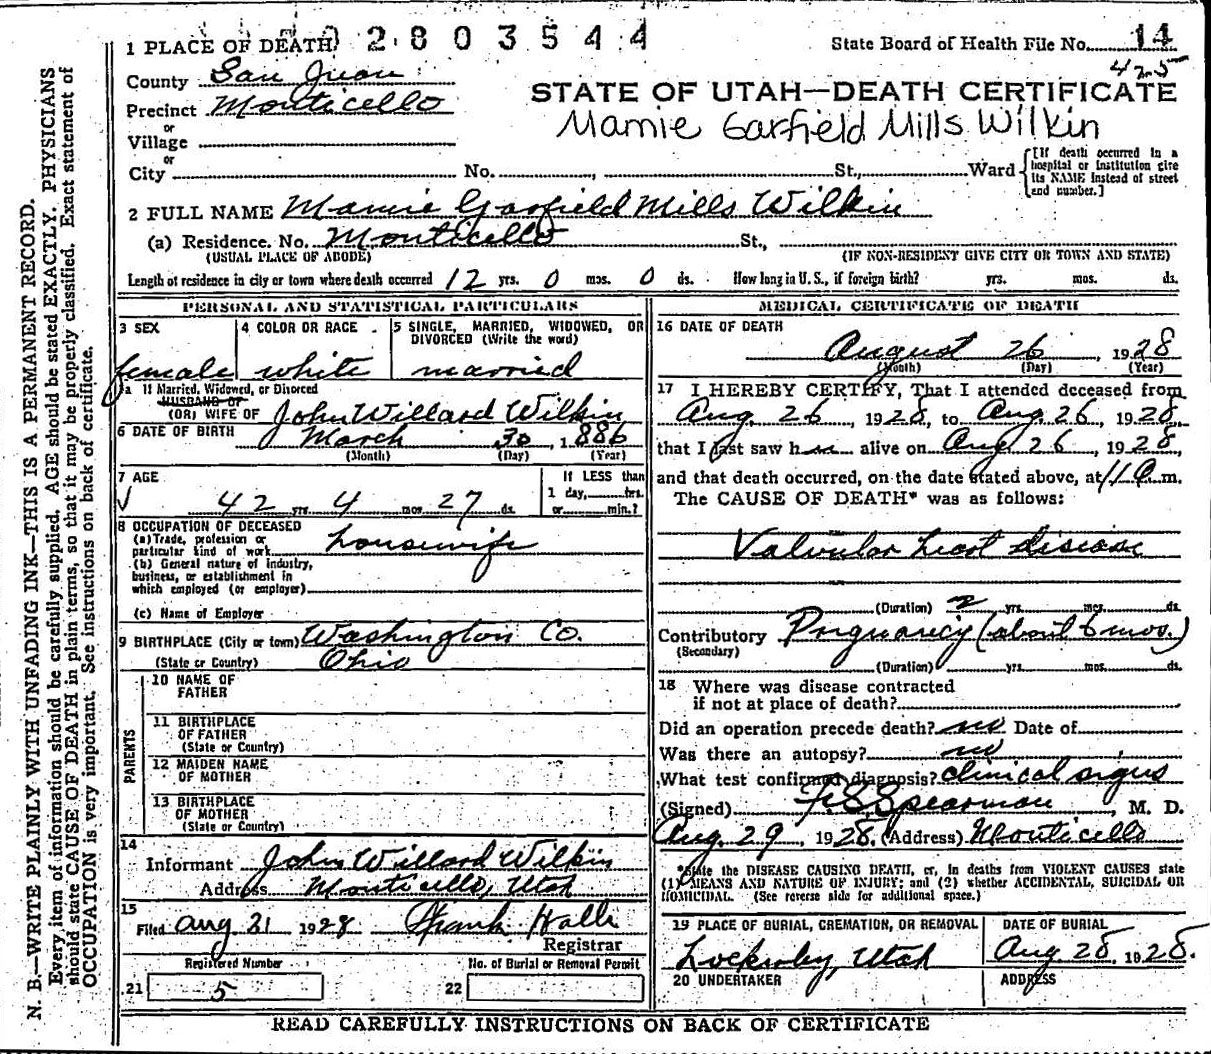 1 PLACE OF DEATH 02803544
State Board of Health File No. 14
425
County San Juan
Precinct Monticello
or
Village
or
City No. , St., Ward
STATE OF UTAH—DEATH CERTIFICATE
Mamie Garfield Mills Wilkin
[If death occurred in a hospital or institution give its NAME instead of street and number.]
2 FULL NAME Mamie Garfield Mills Wilkin
(a) Residence. No. Monticello St.,
(USUAL PLACE OF ABODE) (IF NON-RESIDENT GIVE CITY OR TOWN AND STATE)
Length of residence in city or town where death occurred 12 yrs. 0 mos. 0 ds. How long in U. S., if foreign birth? yrs. mos. ds.
PERSONAL AND STATISTICAL PARTICULARS
3 SEX
female
4 COLOR OR RACE
white
5 SINGLE, MARRIED, WIDOWED, OR DIVORCED (Write the word)
married
5a If Married, Widowed, or Divorced
HUSBAND OF
(OR) WIFE OF John Willard Wilkin
6 DATE OF BIRTH March 30, 1886
(Month) (Day) (Year)
7 AGE
42 yrs. 4 mos. 27 ds.
If LESS than
1 day, hrs.
or min.?
8 OCCUPATION OF DECEASED
(a) Trade, profession or
particular kind of work housewife
(b) General nature of industry,
business, or establishment in
which employed (or employer)
(c) Name of Employer
9 BIRTHPLACE (City or town) Washington Co.
(State or Country) Ohio
PARENTS
10 NAME OF
FATHER
11 BIRTHPLACE
OF FATHER
(State or Country)
12 MAIDEN NAME
OF MOTHER
13 BIRTHPLACE
OF MOTHER
(State or Country)
14
Informant John Willard Wilkin
Address Monticello, Utah
15
Filed Aug 21 1928 Frank Halls
Registrar
Registered Number
21 5
No. of Burial or Removal Permit
22
MEDICAL CERTIFICATE OF DEATH
16 DATE OF DEATH
August 26, 1928
(Month) (Day) (Year)
17 I HEREBY CERTIFY, That I attended deceased from
Aug. 26 1928, to Aug. 26, 1928,
that I last saw her alive on Aug 26, 1928,
and that death occurred, on the date stated above, at 11 a. m.
The CAUSE OF DEATH* was as follows:
Valvular heart disease
(Duration) 2 yrs. mos. ds.
Contributory Pregnancy (about 6 mos.)
(Secondary)
(Duration) yrs. mos. ds.
18 Where was disease contracted
if not at place of death?
Did an operation precede death? no Date of
Was there an autopsy? no
What test confirmed diagnosis? clinical signs
(Signed) Spearman, M. D.
Aug. 29, 1928. (Address) Monticello
*State the DISEASE CAUSING DEATH, or, in deaths from VIOLENT CAUSES state
(1) MEANS AND NATURE OF INJURY; and (2) whether ACCIDENTAL, SUICIDAL OR
HOMICIDAL. (See reverse side for additional space.)
19 PLACE OF BURIAL, CREMATION, OR REMOVAL
Lockerby, Utah
DATE OF BURIAL
Aug 28, 1928.
20 UNDERTAKER
ADDRESS
READ CAREFULLY INSTRUCTIONS ON BACK OF CERTIFICATE
N. B.—WRITE PLAINLY WITH UNFADING INK—THIS IS A PERMANENT RECORD.
Every item of information should be carefully supplied. AGE should be stated EXACTLY. PHYSICIANS
should state CAUSE OF DEATH in plain terms, so that it may be properly classified. Exact statement of
OCCUPATION is very important. See instructions on back of certificate.